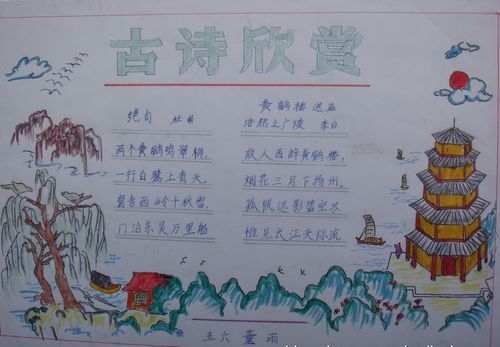 古诗欣赏
绝句 杜甫
两个黄鹂鸣翠柳,
一行白鹭上青天。
窗含西岭千秋雪,
门泊东吴万里船
黄鹤楼送孟
浩然之广陵 李白
故人西辞黄鹤楼,
烟花三月下扬州。
孤帆远影碧空尽
惟见大江天际流
五六 董雨